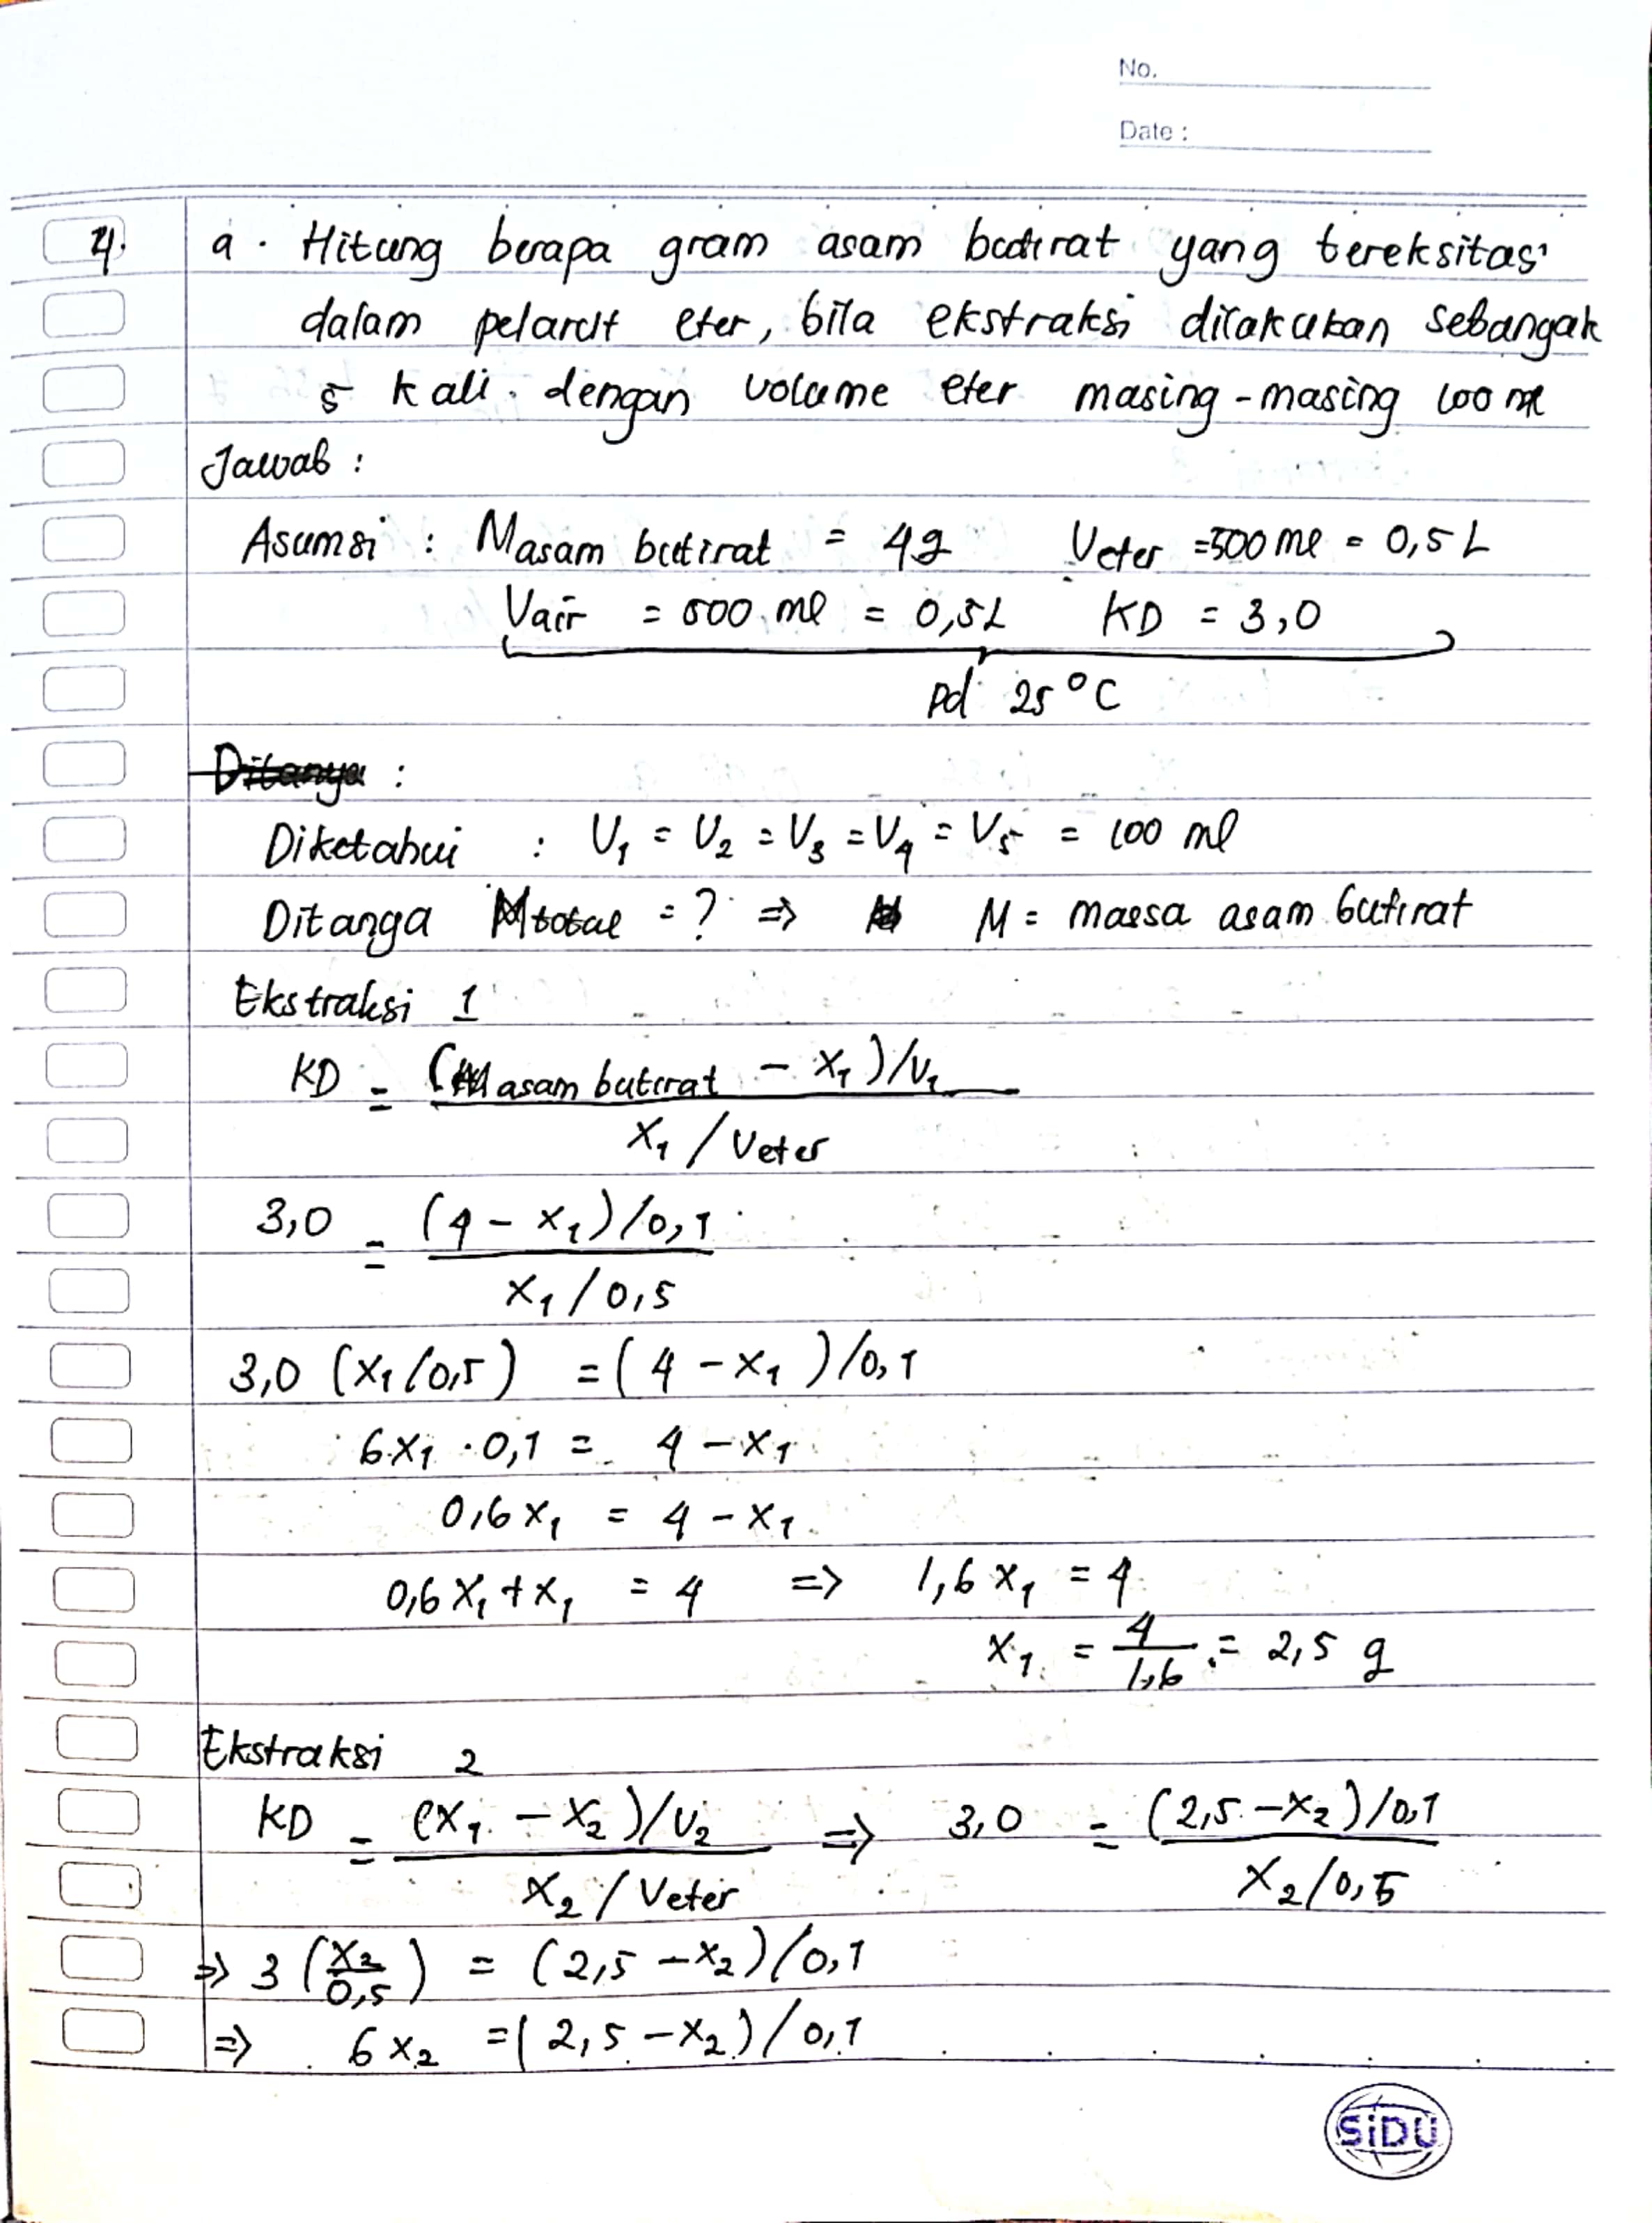 No.
Date :
4. a. Hitung berapa gram asam butirat yang tereksitasi
dalam pelarut eter, bila ekstraksi dilakukan sebanyak
5 kali dengan volume eter masing-masing 100 ml
Jawab :
Asumsi : Masam butirat = 4g Veter = 500 ml = 0,5 L
Vair = 500 ml = 0,5L KD = 3,0
pd 25°C
Ditanya :
Diketahui : V₁ = V₂ = V₃ = V₄ = V₅ = 100 ml
Ditanya Mtotal = ? ⇒ M = massa asam butirat
Ekstraksi 1
KD = (Masam butirat - x₁)/V₁
x₁ / Veter
3,0 = (4 - x₁)/0,1
x₁ / 0,5
3,0 (x₁/0,5) = (4 - x₁)/0,1
6x₁ . 0,1 = 4 - x₁
0,6x₁ = 4 - x₁
0,6x₁ + x₁ = 4 ⇒ 1,6 x₁ = 4
x₁ = 4/1,6 = 2,5 g
Ekstraksi 2
KD = (x₁ - x₂)/V₂ ⇒ 3,0 = (2,5 - x₂)/0,1
x₂ / Veter x₂/0,5
⇒ 3 (x₂/0,5) = (2,5 - x₂)/0,1
⇒ 6x₂ = (2,5 - x₂)/0,1
SiDU